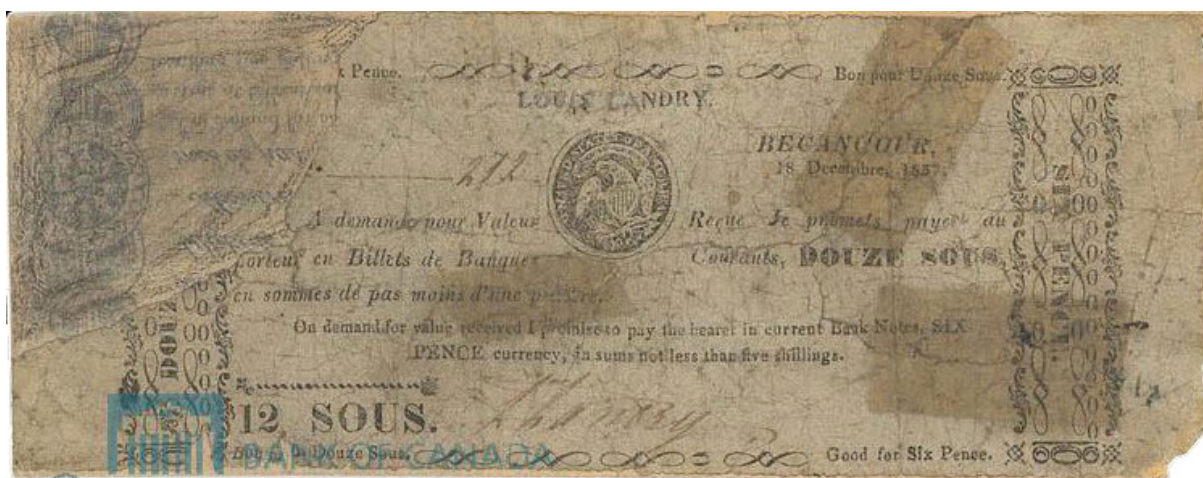 Pence. Bon pour Douze Sous.
LOUIS LANDRY.
BECANCOUR,
272 18 Decembre, 1837.
A demande pour Valeur Reçue Je promets payer au
Porteur en Billets de Banques Courants, DOUZE SOUS,
en sommes de pas moins d'une piastre.
On demand for value received I promise to pay the bearer in current Bank Notes, SIX
PENCE currency, in sums not less than five shillings.
12 SOUS.
L Landry
BANK OF CANADA
Bon pour Douze Sous. Good for Six Pence.
DOUZE
SIX PENCE.